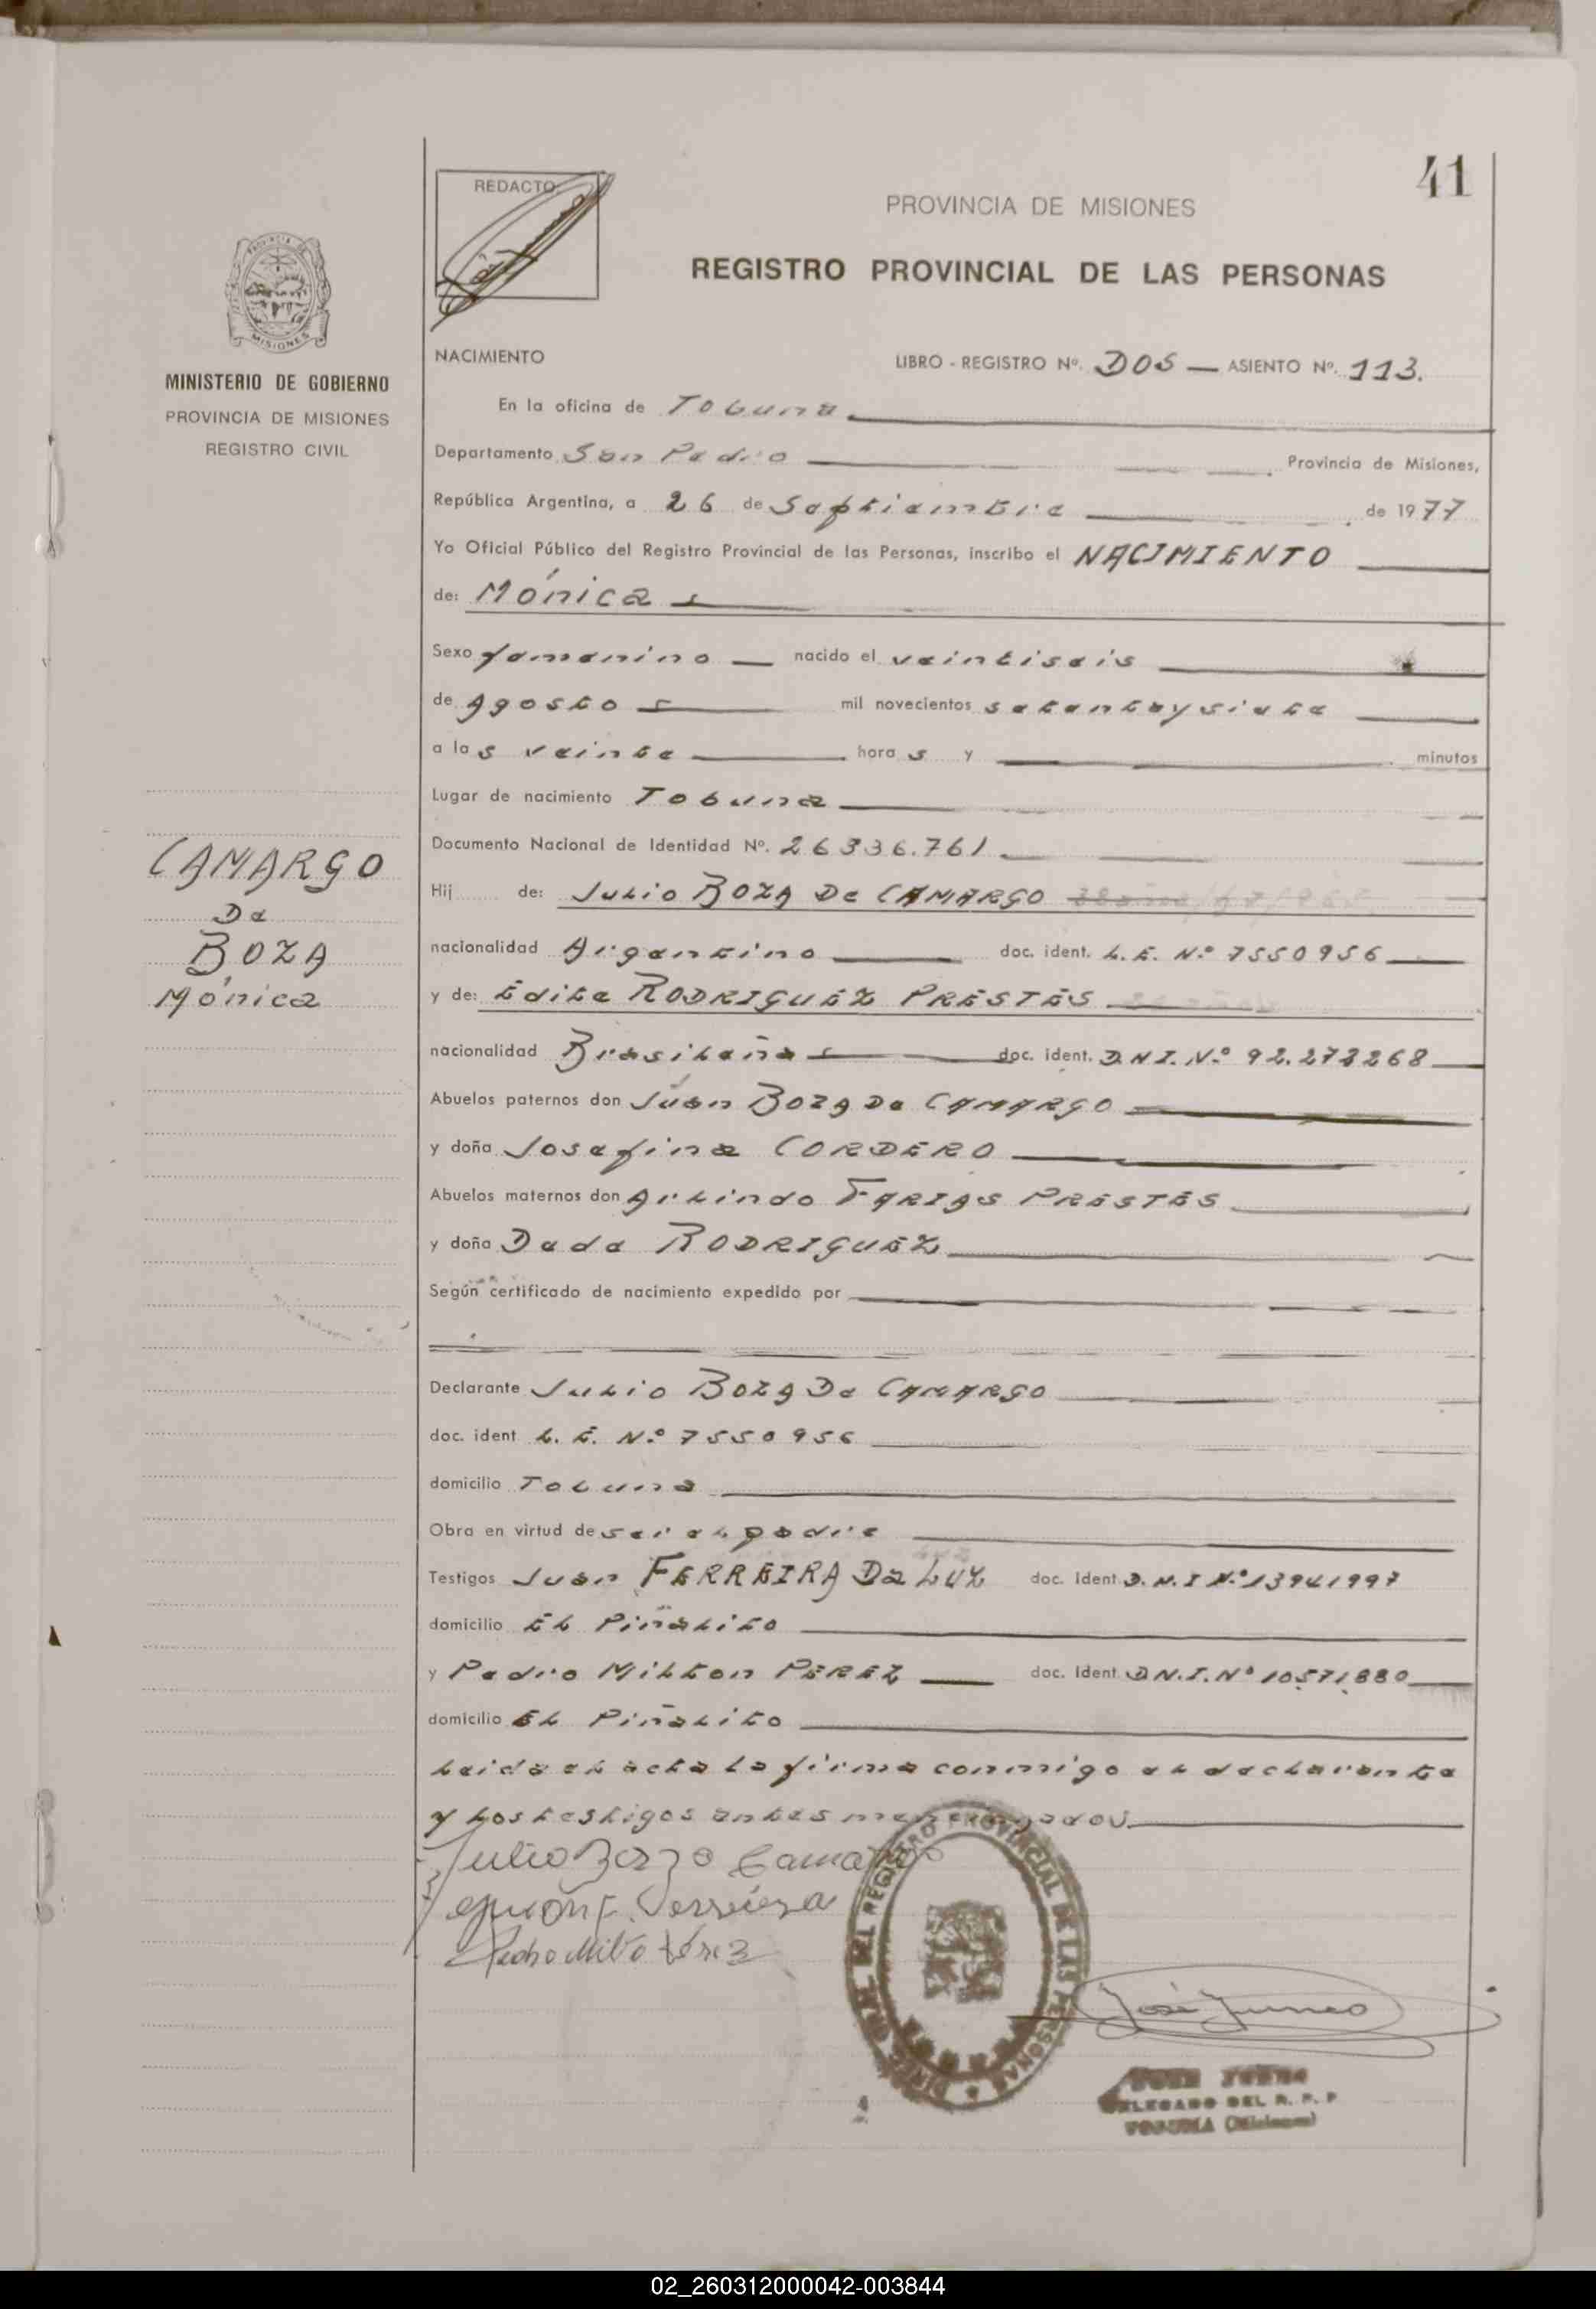 41
REDACTO
PROVINCIA DE MISIONES
REGISTRO PROVINCIAL DE LAS PERSONAS
MISIONES
MINISTERIO DE GOBIERNO
PROVINCIA DE MISIONES
REGISTRO CIVIL
NACIMIENTO LIBRO - REGISTRO Nº. DOS — ASIENTO Nº. 113.
En la oficina de Tobuna
Departamento San Pedro Provincia de Misiones,
República Argentina, a 26 de Septiembre de 1977
Yo Oficial Público del Registro Provincial de las Personas, inscribo el NACIMIENTO
de: Mónica
Sexo femenino nacido el veintiseis
de Agosto mil novecientos setentaysiete
a las veinte horas y minutos
Lugar de nacimiento Tobuna
Documento Nacional de Identidad Nº. 26336.761
CAMARGO
De
BOZA
Mónica
Hij de: Julio BOZA De CAMARGO
nacionalidad Argentino doc. ident. L.E. Nº 7550956
y de: Edite RODRIGUEZ PRESTES
nacionalidad Brasileña doc. ident. D.N.I. Nº 92.272268
Abuelos paternos don Juán BOZA De CAMARGO
y doña Josefina CORDERO
Abuelos maternos don Arlindo FARIAS PRESTES
y doña Dada RODRIGUEZ
Según certificado de nacimiento expedido por
Declarante Julio BOZA De CAMARGO
doc. ident L.E. Nº 7550956
domicilio Tobuna
Obra en virtud de ser el padre
Testigos Juan FERREIRA Da LUZ doc. Ident D.N.I Nº 13941997
domicilio El Piñalito
y Pedro Milton PEREZ doc. Ident D.N.I. Nº 10571880
domicilio El Piñalito
Leida el acta la firma conmigo el declarante
y los testigos antes mencionados
Julio Bozza Camargo
Juan F. Ferreira
Pedro Milto Pérez
DEL REGISTRO PROVINCIAL DE LAS PERSONAS
José Junco
DELEGADO DEL R. P. P
TOBUNA (Misiones)
02_260312000042-003844